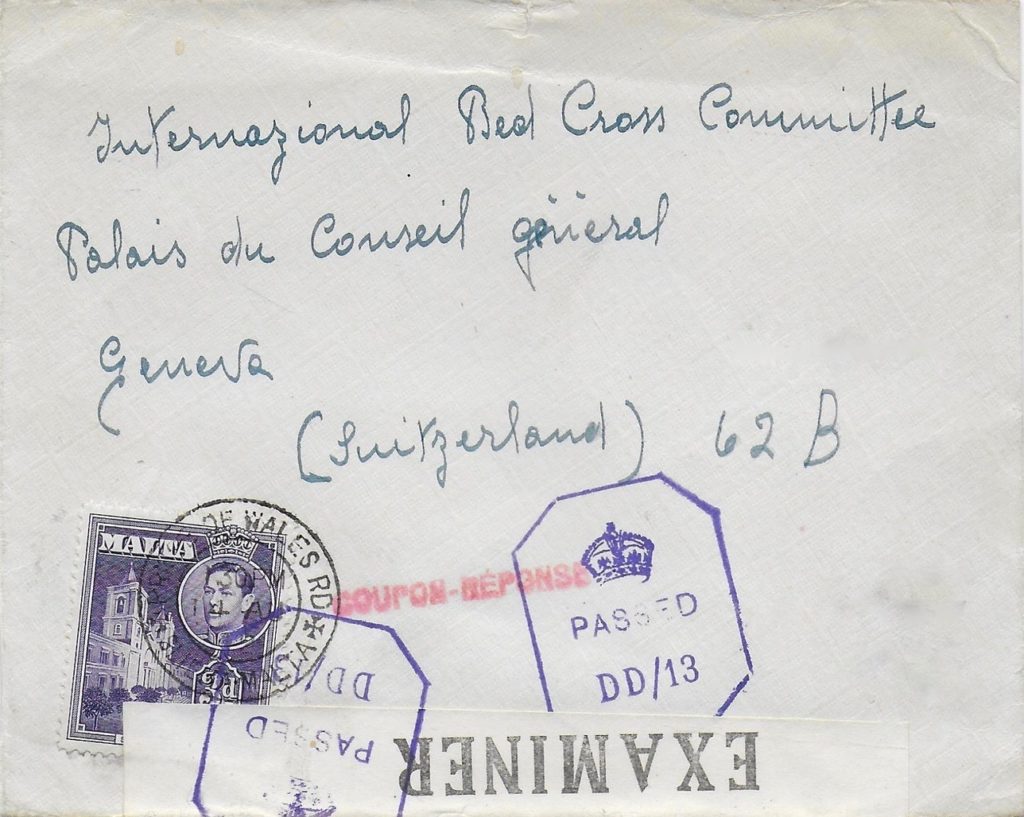 Internazional Red Cross Committee
Palais du Conseil général
Geneva
(Suitzerland) 62 B
MALTA
OF WALES RD
30 PM
14 A
MALTA
COUPON-RÉPONSE
PASSED
DD/13
DD/13
PASSED
EXAMINER